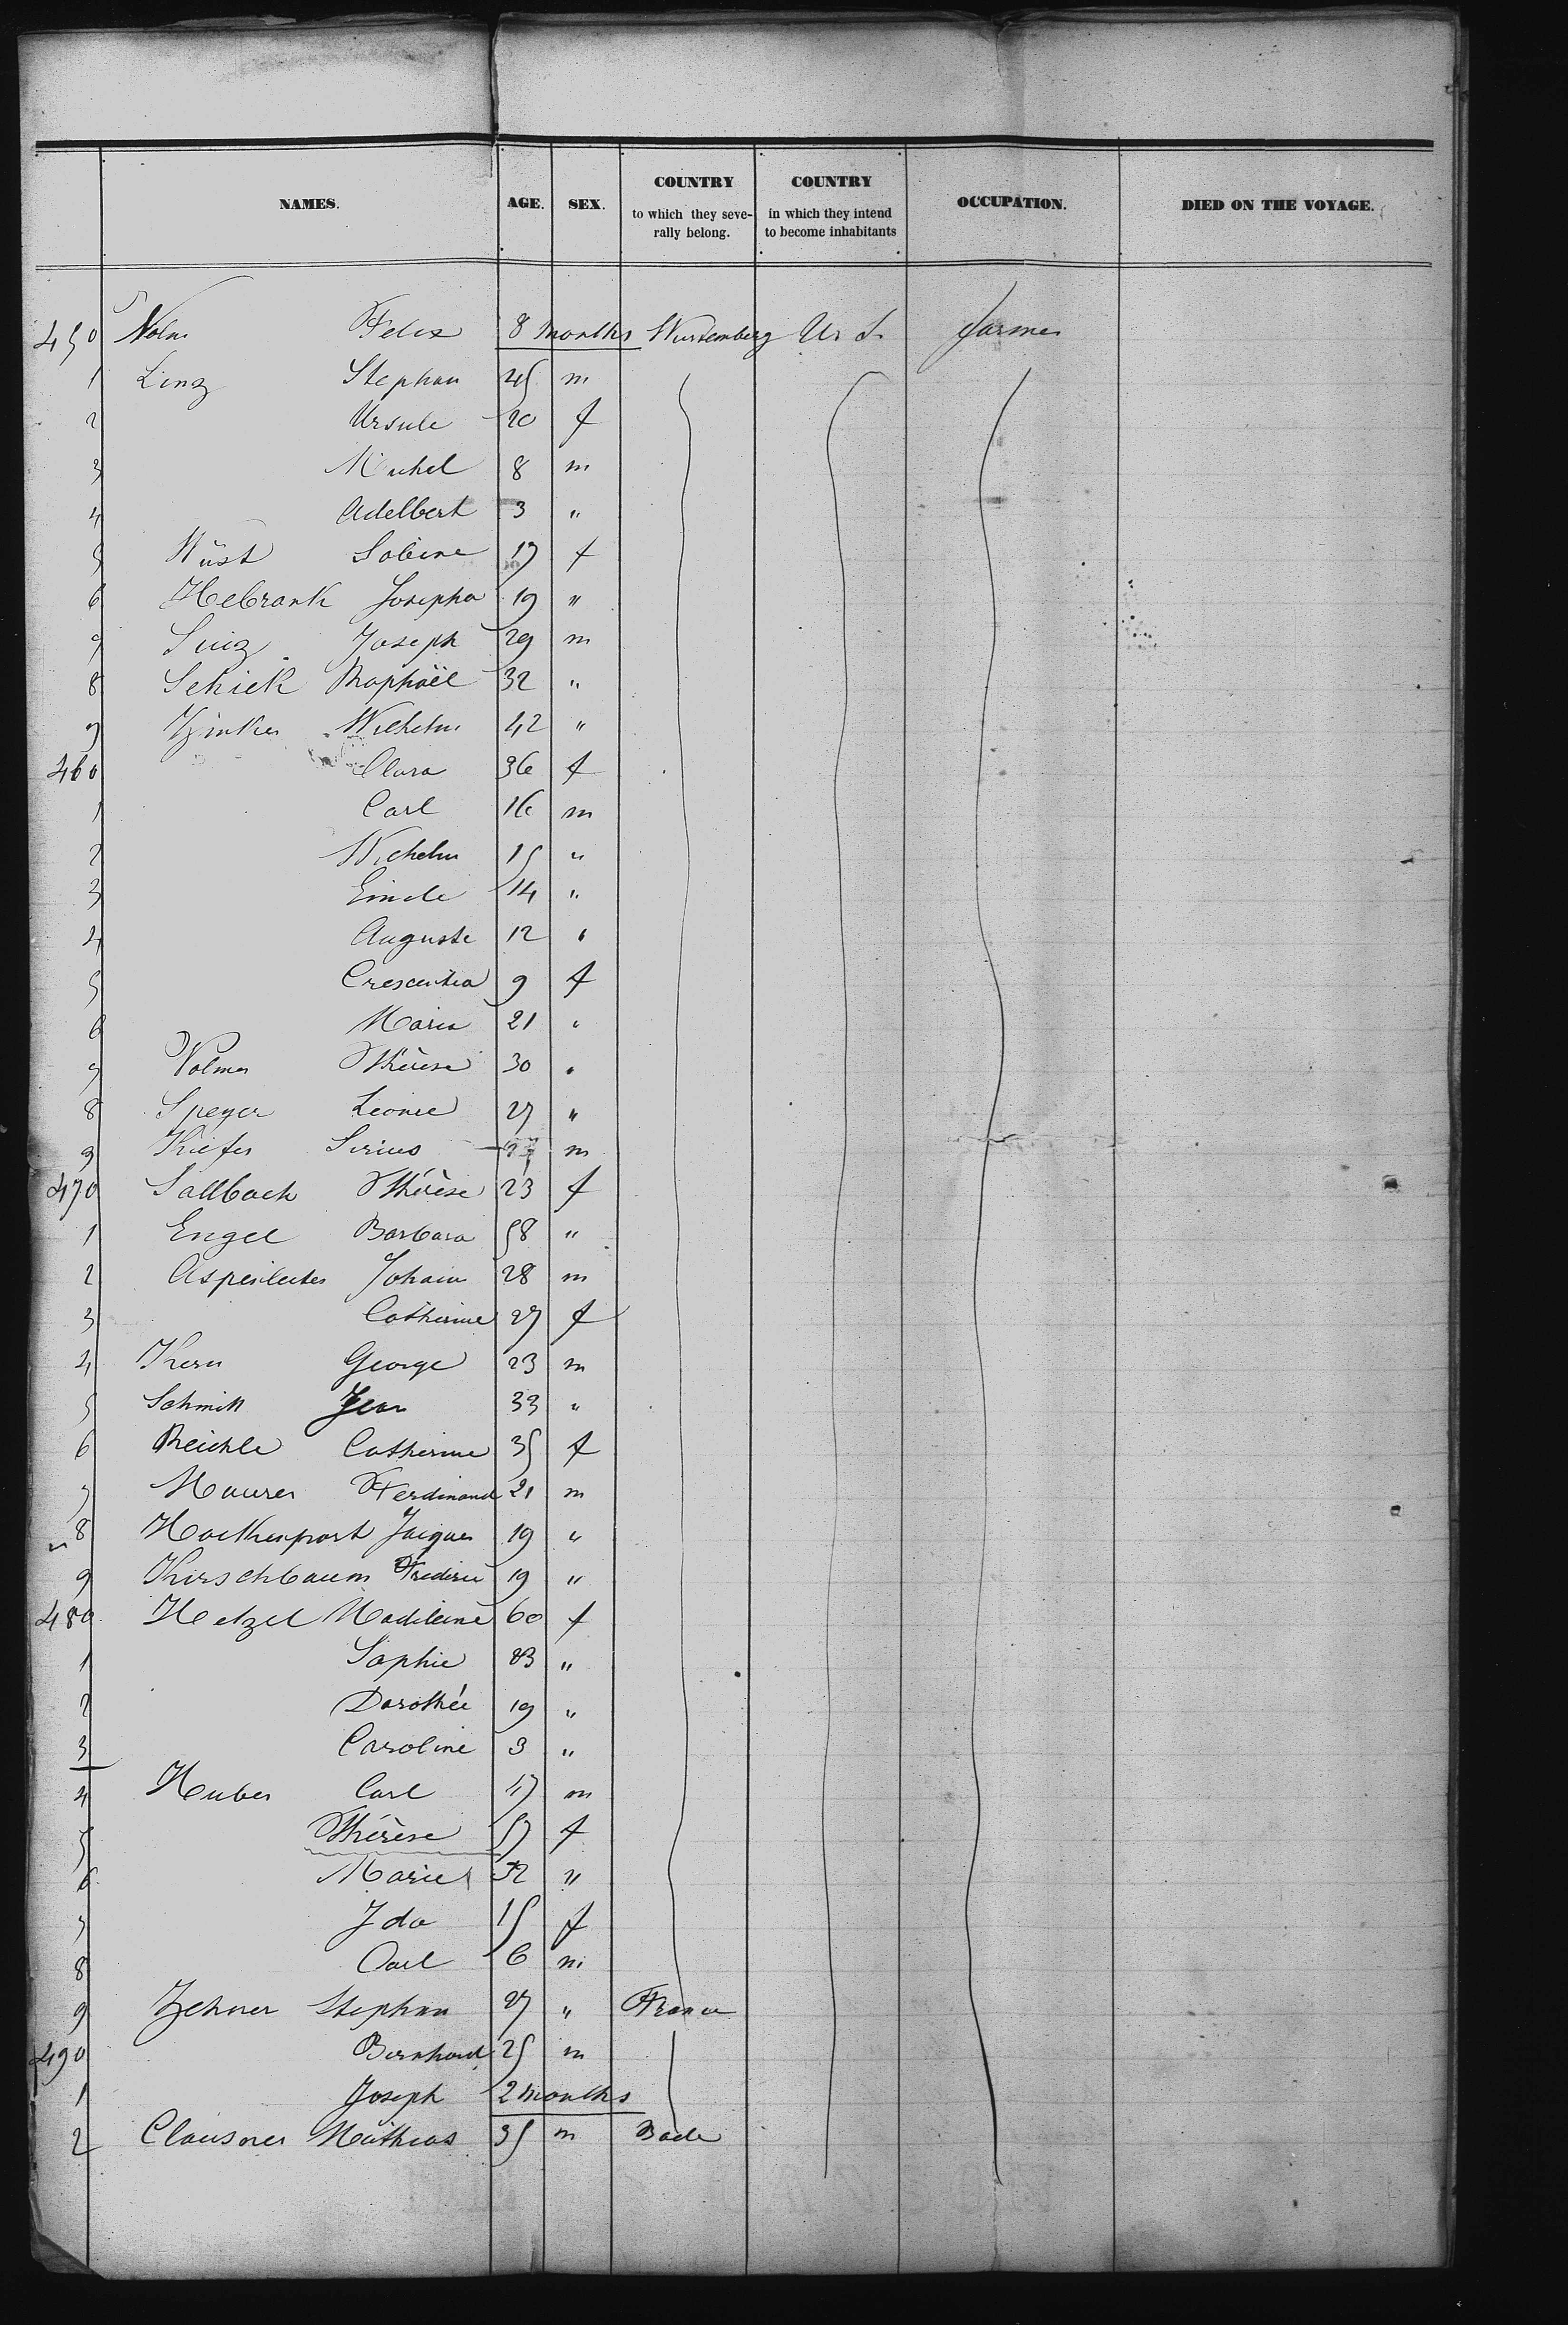 NAMES. AGE. SEX. COUNTRY to which they severally belong. COUNTRY in which they intend to become inhabitants OCCUPATION. DIED ON THE VOYAGE.
450 Felix 8 months Wurtemberg U. S. farmer
1 Linz Stephan 45 m
2 Ursule 20 f
3 Michel 8 m
4 Adelbert 3 "
5 Wüst Sabine 17 f
6 Hebrank Josepha 19 "
7 Joseph 29 m
8 Schick Raphaël 32 "
9 Wilhelm 42 "
460 Clara 36 f
1 Carl 16 m
2 Wilhelm 15 "
3 Emile 14 "
4 Auguste 12 "
5 Crescentia 9 f
6 Maria 21 "
7 Volmer Thérèse 30 "
8 Speyer Leonie 27 "
9 Kiefer Sirius m
470 Sallbach Thérèse 23 f
1 Engel Barbara 58 "
2 Johann 28 m
3 Catherine 27 f
4 Kern George 23 m
5 Schmitt Jean 33 "
6 Reichle Catherine 35 f
7 Maurer Ferdinand 21 m
8 Jacques 19 "
9 Kirschbaum Frederic 19 "
480 Hetzel Madeleine 60 f
1 Sophie 23 "
2 Dorothée 19 "
3 Caroline 3 "
4 Huber Carl 47 m
5 Thérèse 57 f
6 Marie 32 "
7 Ida 15 f
8 Carl 6 m
9 Zehner Stephan 27 " France
490 Bernhard 25 m
1 Joseph 2 months
2 Clausner Mathias 35 m Bade